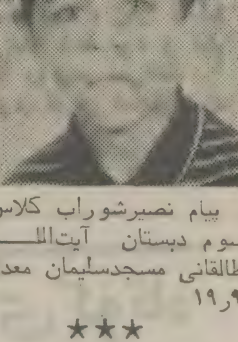 پیام نصیرشوراب کلاس
سوم دبستان آیت‌اللـــه
طالقانی مسجدسلیمان معدل
۱۹ر۹
★★★